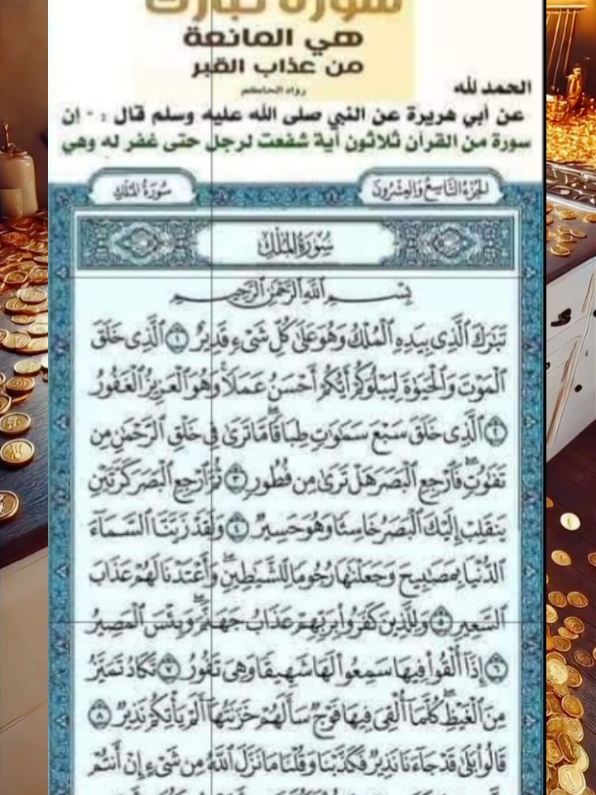 سورة تبارك
هي المانعة
من عذاب القبر
رواه الحاكم
الحمد لله
عن أبي هريرة عن النبي صلى الله عليه وسلم قال : - إن
سورة من القرآن ثلاثون آية شفعت لرجل حتى غفر له وهي
الجزء التاسع والعشرون
سورة الملك
سورة الملك
بسم الله الرحمن الرحيم
تَبَٰرَكَ ٱلَّذِي بِيَدِهِ ٱلْمُلْكُ وَهُوَ عَلَىٰ كُلِّ شَيْءٍ قَدِيرٌ ١ ٱلَّذِي خَلَقَ
ٱلْمَوْتَ وَٱلْحَيَوٰةَ لِيَبْلُوَكُمْ أَيُّكُمْ أَحْسَنُ عَمَلًا وَهُوَ ٱلْعَزِيزُ ٱلْغَفُورُ
٢ ٱلَّذِي خَلَقَ سَبْعَ سَمَٰوَٰتٍ طِبَاقًا مَّا تَرَىٰ فِي خَلْقِ ٱلرَّحْمَٰنِ مِن
تَفَٰوُتٍ فَٱرْجِعِ ٱلْبَصَرَ هَلْ تَرَىٰ مِن فُطُورٍ ٣ ثُمَّ ٱرْجِعِ ٱلْبَصَرَ كَرَّتَيْنِ
يَنقَلِبْ إِلَيْكَ ٱلْبَصَرُ خَاسِئًا وَهُوَ حَسِيرٌ ٤ وَلَقَدْ زَيَّنَّا ٱلسَّمَآءَ
ٱلدُّنْيَا بِمَصَٰبِيحَ وَجَعَلْنَٰهَا رُجُومًا لِّلشَّيَٰطِينِ وَأَعْتَدْنَا لَهُمْ عَذَابَ
ٱلسَّعِيرِ ٥ وَلِلَّذِينَ كَفَرُوا۟ بِرَبِّهِمْ عَذَابُ جَهَنَّمَ وَبِئْسَ ٱلْمَصِيرُ
٦ إِذَآ أُلْقُوا۟ فِيهَا سَمِعُوا۟ لَهَا شَهِيقًا وَهِيَ تَفُورُ ٧ تَكَادُ تَمَيَّزُ
مِنَ ٱلْغَيْظِ كُلَّمَآ أُلْقِيَ فِيهَا فَوْجٌ سَأَلَهُمْ خَزَنَتُهَآ أَلَمْ يَأْتِكُمْ نَذِيرٌ ٨
قَالُوا۟ بَلَىٰ قَدْ جَآءَنَا نَذِيرٌ فَكَذَّبْنَا وَقُلْنَا مَا نَزَّلَ ٱللَّهُ مِن شَيْءٍ إِنْ أَنتُمْ